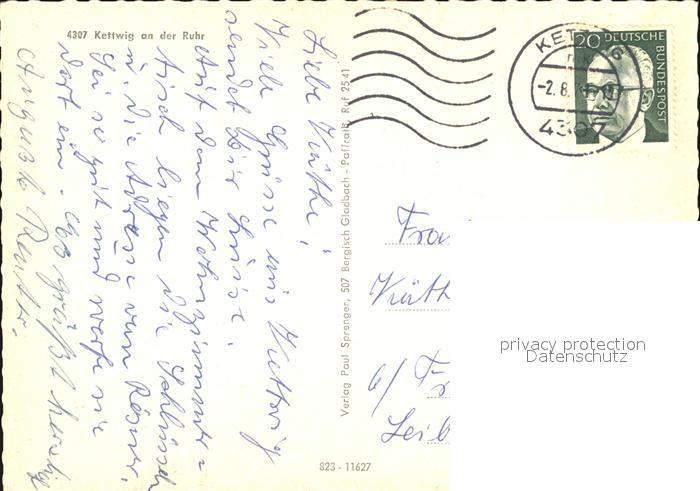 4307 Kettwig an der Ruhr
Liebe Käthe!
Viele Grüsse aus Kettwig
sendet Dir Luise.
Auf dem Wohnzimmer=
tisch liegen die Schlüssel
u die Adresse von
Sei so gut und werfe sie
dort ein. Es grüßt herzlich
Verlag Paul Sprenger, 507 Bergisch Gladbach - Paffrath, Ruf 2541
823 - 11627
KET
-2.8.
4307
20 DEUTSCHE
BUNDESPOST
Frau
Käth
privacy protection
Datenschutz